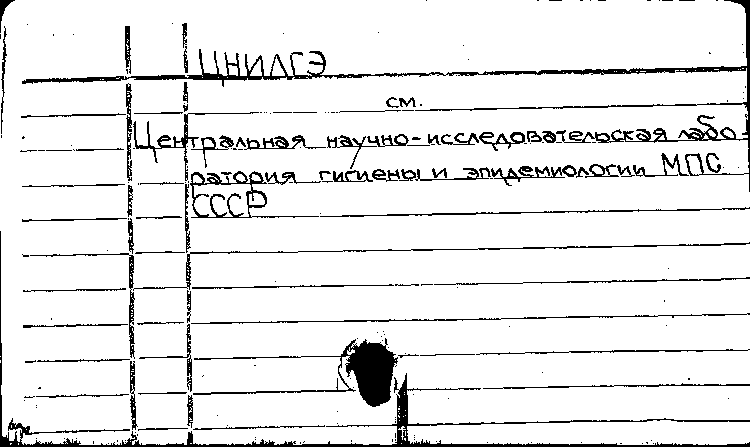 ЦНИЛГЭ
см.
Центральная научно-исследовательская лабо-
ратория гигиены и эпидемиологии МПС
СССР